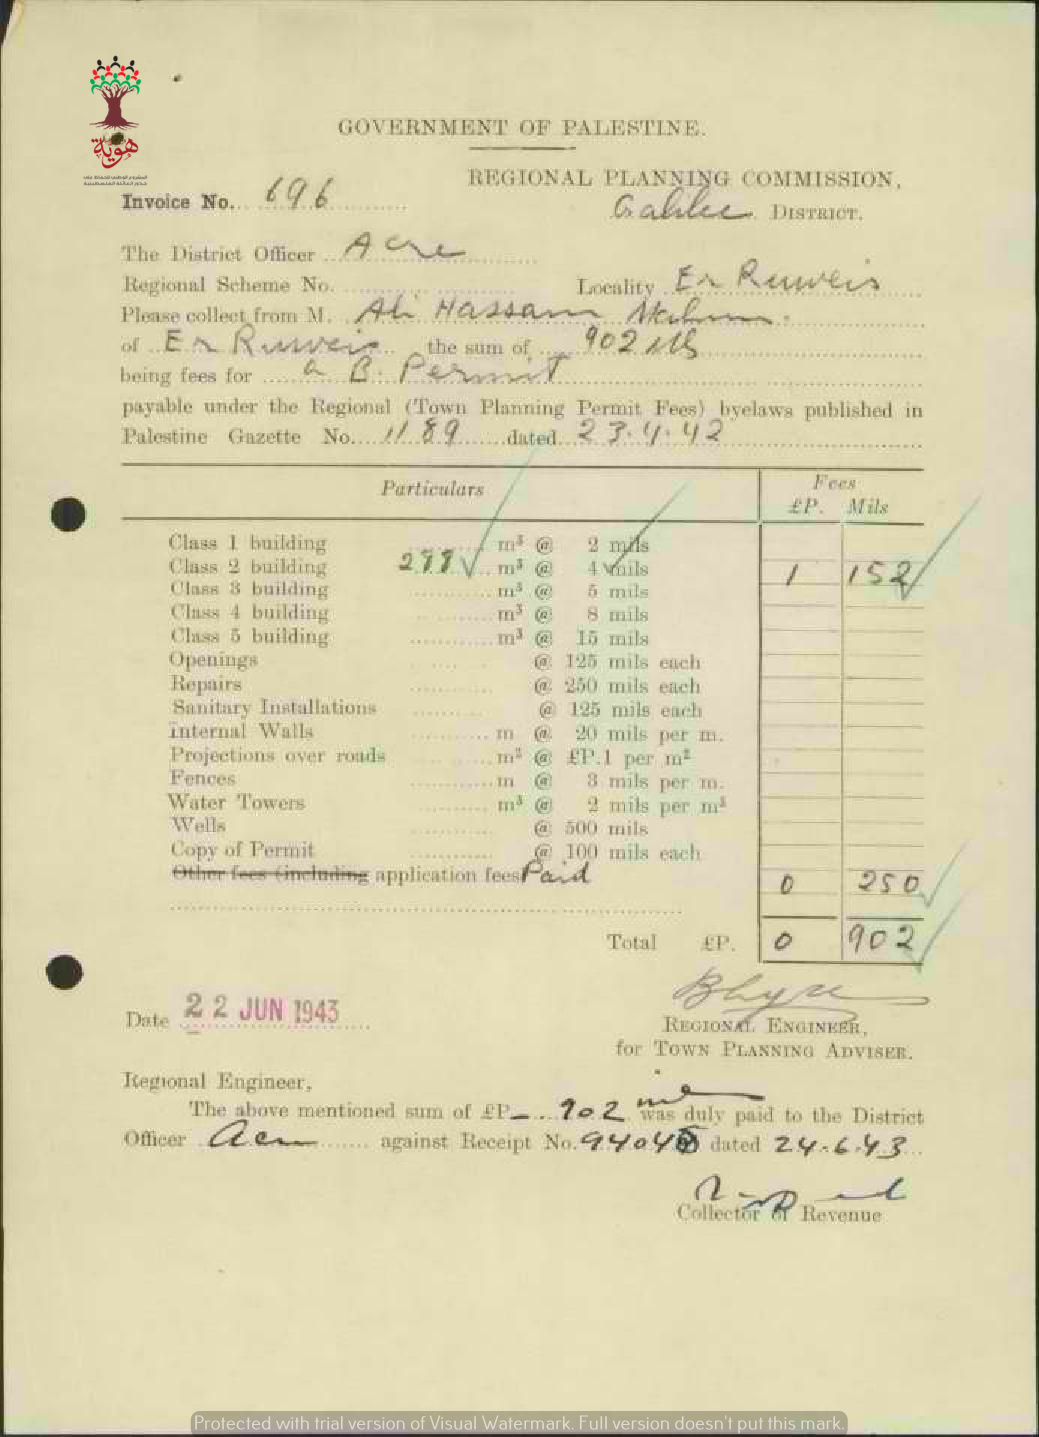 هوية
GOVERNMENT OF PALESTINE.
REGIONAL PLANNING COMMISSION,
Invoice No. 696
Galilee DISTRICT.
The District Officer Acre
Regional Scheme No. Locality Er Ruweis
Please collect from M. Ali Hassan
of Er Ruweis the sum of 902 Mls
being fees for a B. Permit
payable under the Regional (Town Planning Permit Fees) byelaws published in
Palestine Gazette No. 1189 dated 23.4.42
Particulars Fees
£P. Mils
Class 1 building m³ @ 2 mils
Class 2 building 288 m³ @ 4 mils 1 152
Class 3 building m³ @ 5 mils
Class 4 building m³ @ 8 mils
Class 5 building m³ @ 15 mils
Openings @ 125 mils each
Repairs @ 250 mils each
Sanitary Installations @ 125 mils each
Internal Walls m @ 20 mils per m.
Projections over roads m² @ £P.1 per m²
Fences m @ 3 mils per m.
Water Towers m³ @ 2 mils per m³
Wells @ 500 mils
Copy of Permit @ 100 mils each
Other fees (including application fees Paid 0 250
Total £P. 0 902
Date 22 JUN 1943
REGIONAL ENGINEER,
for TOWN PLANNING ADVISER.
Regional Engineer,
The above mentioned sum of £P 902 was duly paid to the District
Officer Acre against Receipt No. dated 24.6.43
Collector of Revenue
Protected with trial version of Visual Watermark. Full version doesn't put this mark.